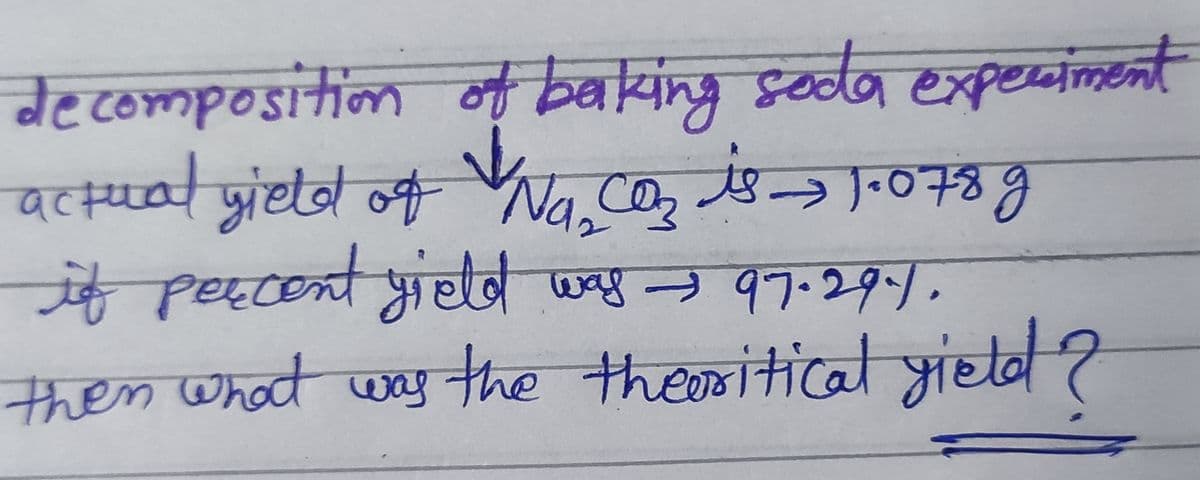 decomposition of baking soda experiment
actual yield of ↓ Na₂CO₃ is → 1.078 g
if percent yield was → 97.29%.
then what was the theoritical yield?